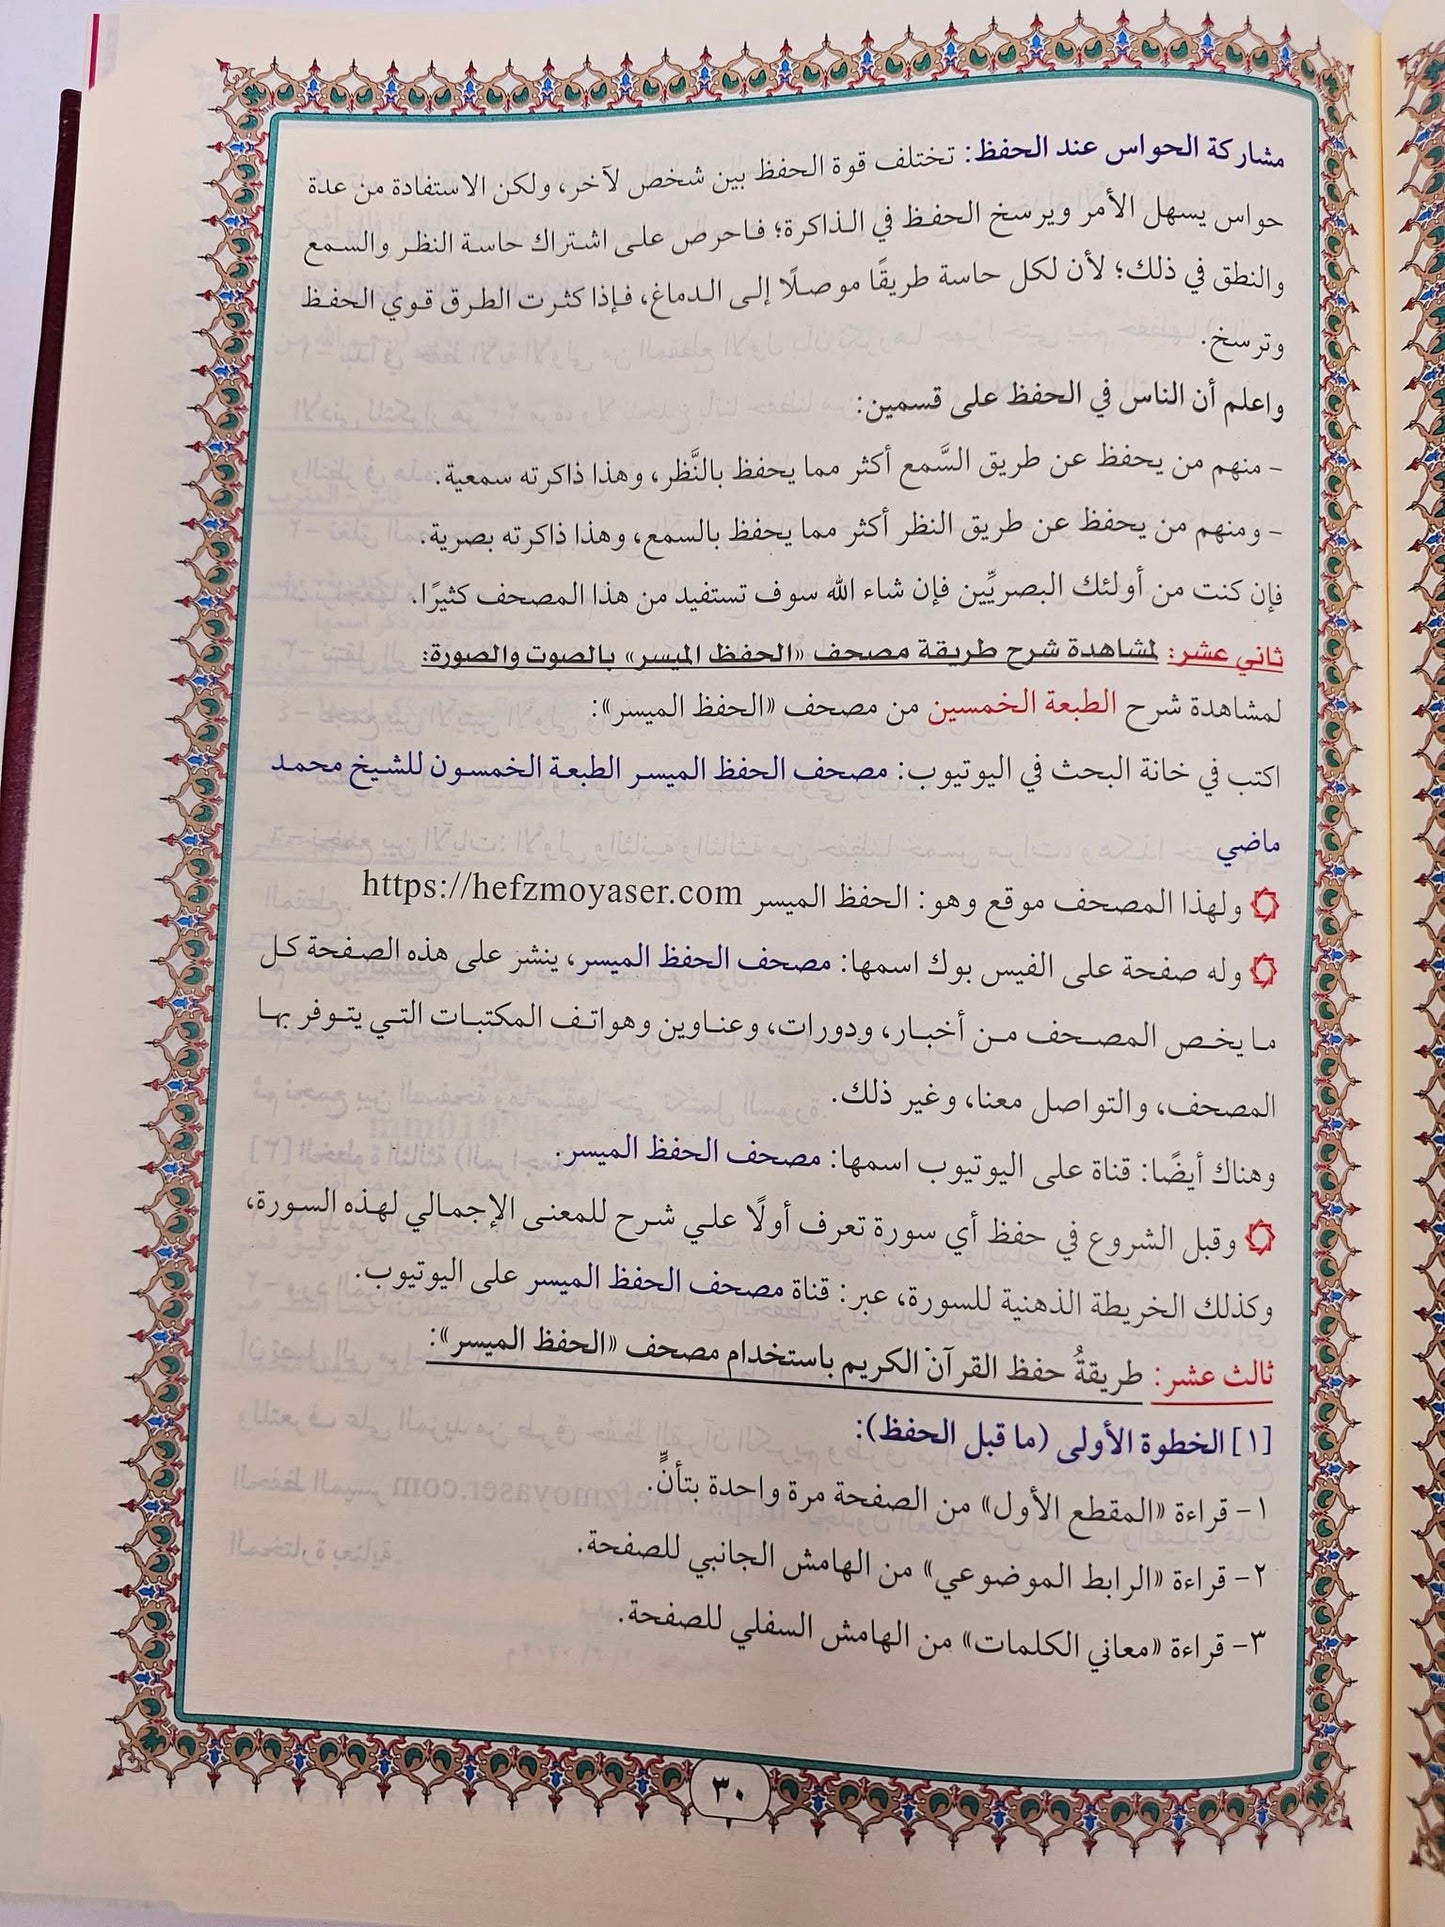 مشاركة الحواس عند الحفظ: تختلف قوة الحفظ بين شخص لآخر، ولكن الاستفادة من عدة
حواس يسهل الأمر ويرسخ الحفظ في الذاكرة؛ فاحرص على اشتراك حاسة النظر والسمع
والنطق في ذلك؛ لأن لكل حاسة طريقًا موصلًا إلى الدماغ، فإذا كثرت الطرق قوي الحفظ
وترسخ.
واعلم أن الناس في الحفظ على قسمين:
- منهم من يحفظ عن طريق السَّمع أكثر مما يحفظ بالنَّظر، وهذا ذاكرته سمعية.
- ومنهم من يحفظ عن طريق النظر أكثر مما يحفظ بالسمع، وهذا ذاكرته بصرية.
فإن كنت من أولئك البصريِّين فإن شاء الله سوف تستفيد من هذا المصحف كثيرًا.
ثاني عشر: لمشاهدة شرح طريقة مصحف «الحفظ الميسر» بالصوت والصورة:
لمشاهدة شرح الطبعة الخمسين من مصحف «الحفظ الميسر»:
اكتب في خانة البحث في اليوتيوب: مصحف الحفظ الميسر الطبعة الخمسون للشيخ محمد
ماضي
ولهذا المصحف موقع وهو: الحفظ الميسر https://hefzmoyaser.com
وله صفحة على الفيس بوك اسمها: مصحف الحفظ الميسر، ينشر على هذه الصفحة كل
ما يخص المصحف من أخبار، ودورات، وعناوين وهواتف المكتبات التي يتوفر بها
المصحف، والتواصل معنا، وغير ذلك.
وهناك أيضًا: قناة على اليوتيوب اسمها: مصحف الحفظ الميسر.
وقبل الشروع في حفظ أي سورة تعرف أولًا علي شرح للمعنى الإجمالي لهذه السورة،
وكذلك الخريطة الذهنية للسورة، عبر: قناة مصحف الحفظ الميسر على اليوتيوب.
ثالث عشر: طريقةُ حفظ القرآن الكريم باستخدام مصحف «الحفظ الميسر»:
[١] الخطوة الأولى (ما قبل الحفظ):
١- قراءة «المقطع الأول» من الصفحة مرة واحدة بتأنٍّ.
٢- قراءة «الرابط الموضوعي» من الهامش الجانبي للصفحة.
٣- قراءة «معاني الكلمات» من الهامش السفلي للصفحة.
٣٠